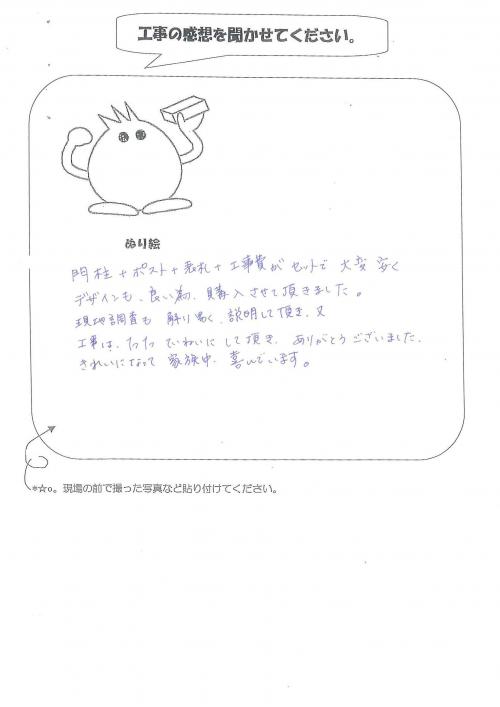 工事の感想を聞かせてください。
ぬり絵
門柱+ポスト+表札+工事費が セットで 大変 安く
デザインも、良い為、購入させて頂きました。
現地調査も 解り易く、説明して頂き、又
工事は、 ていねいに して頂き、ありがとうございました。
きれいになって 家族中、喜んでいます。
*☆o。現場の前で撮った写真など貼り付けてください。